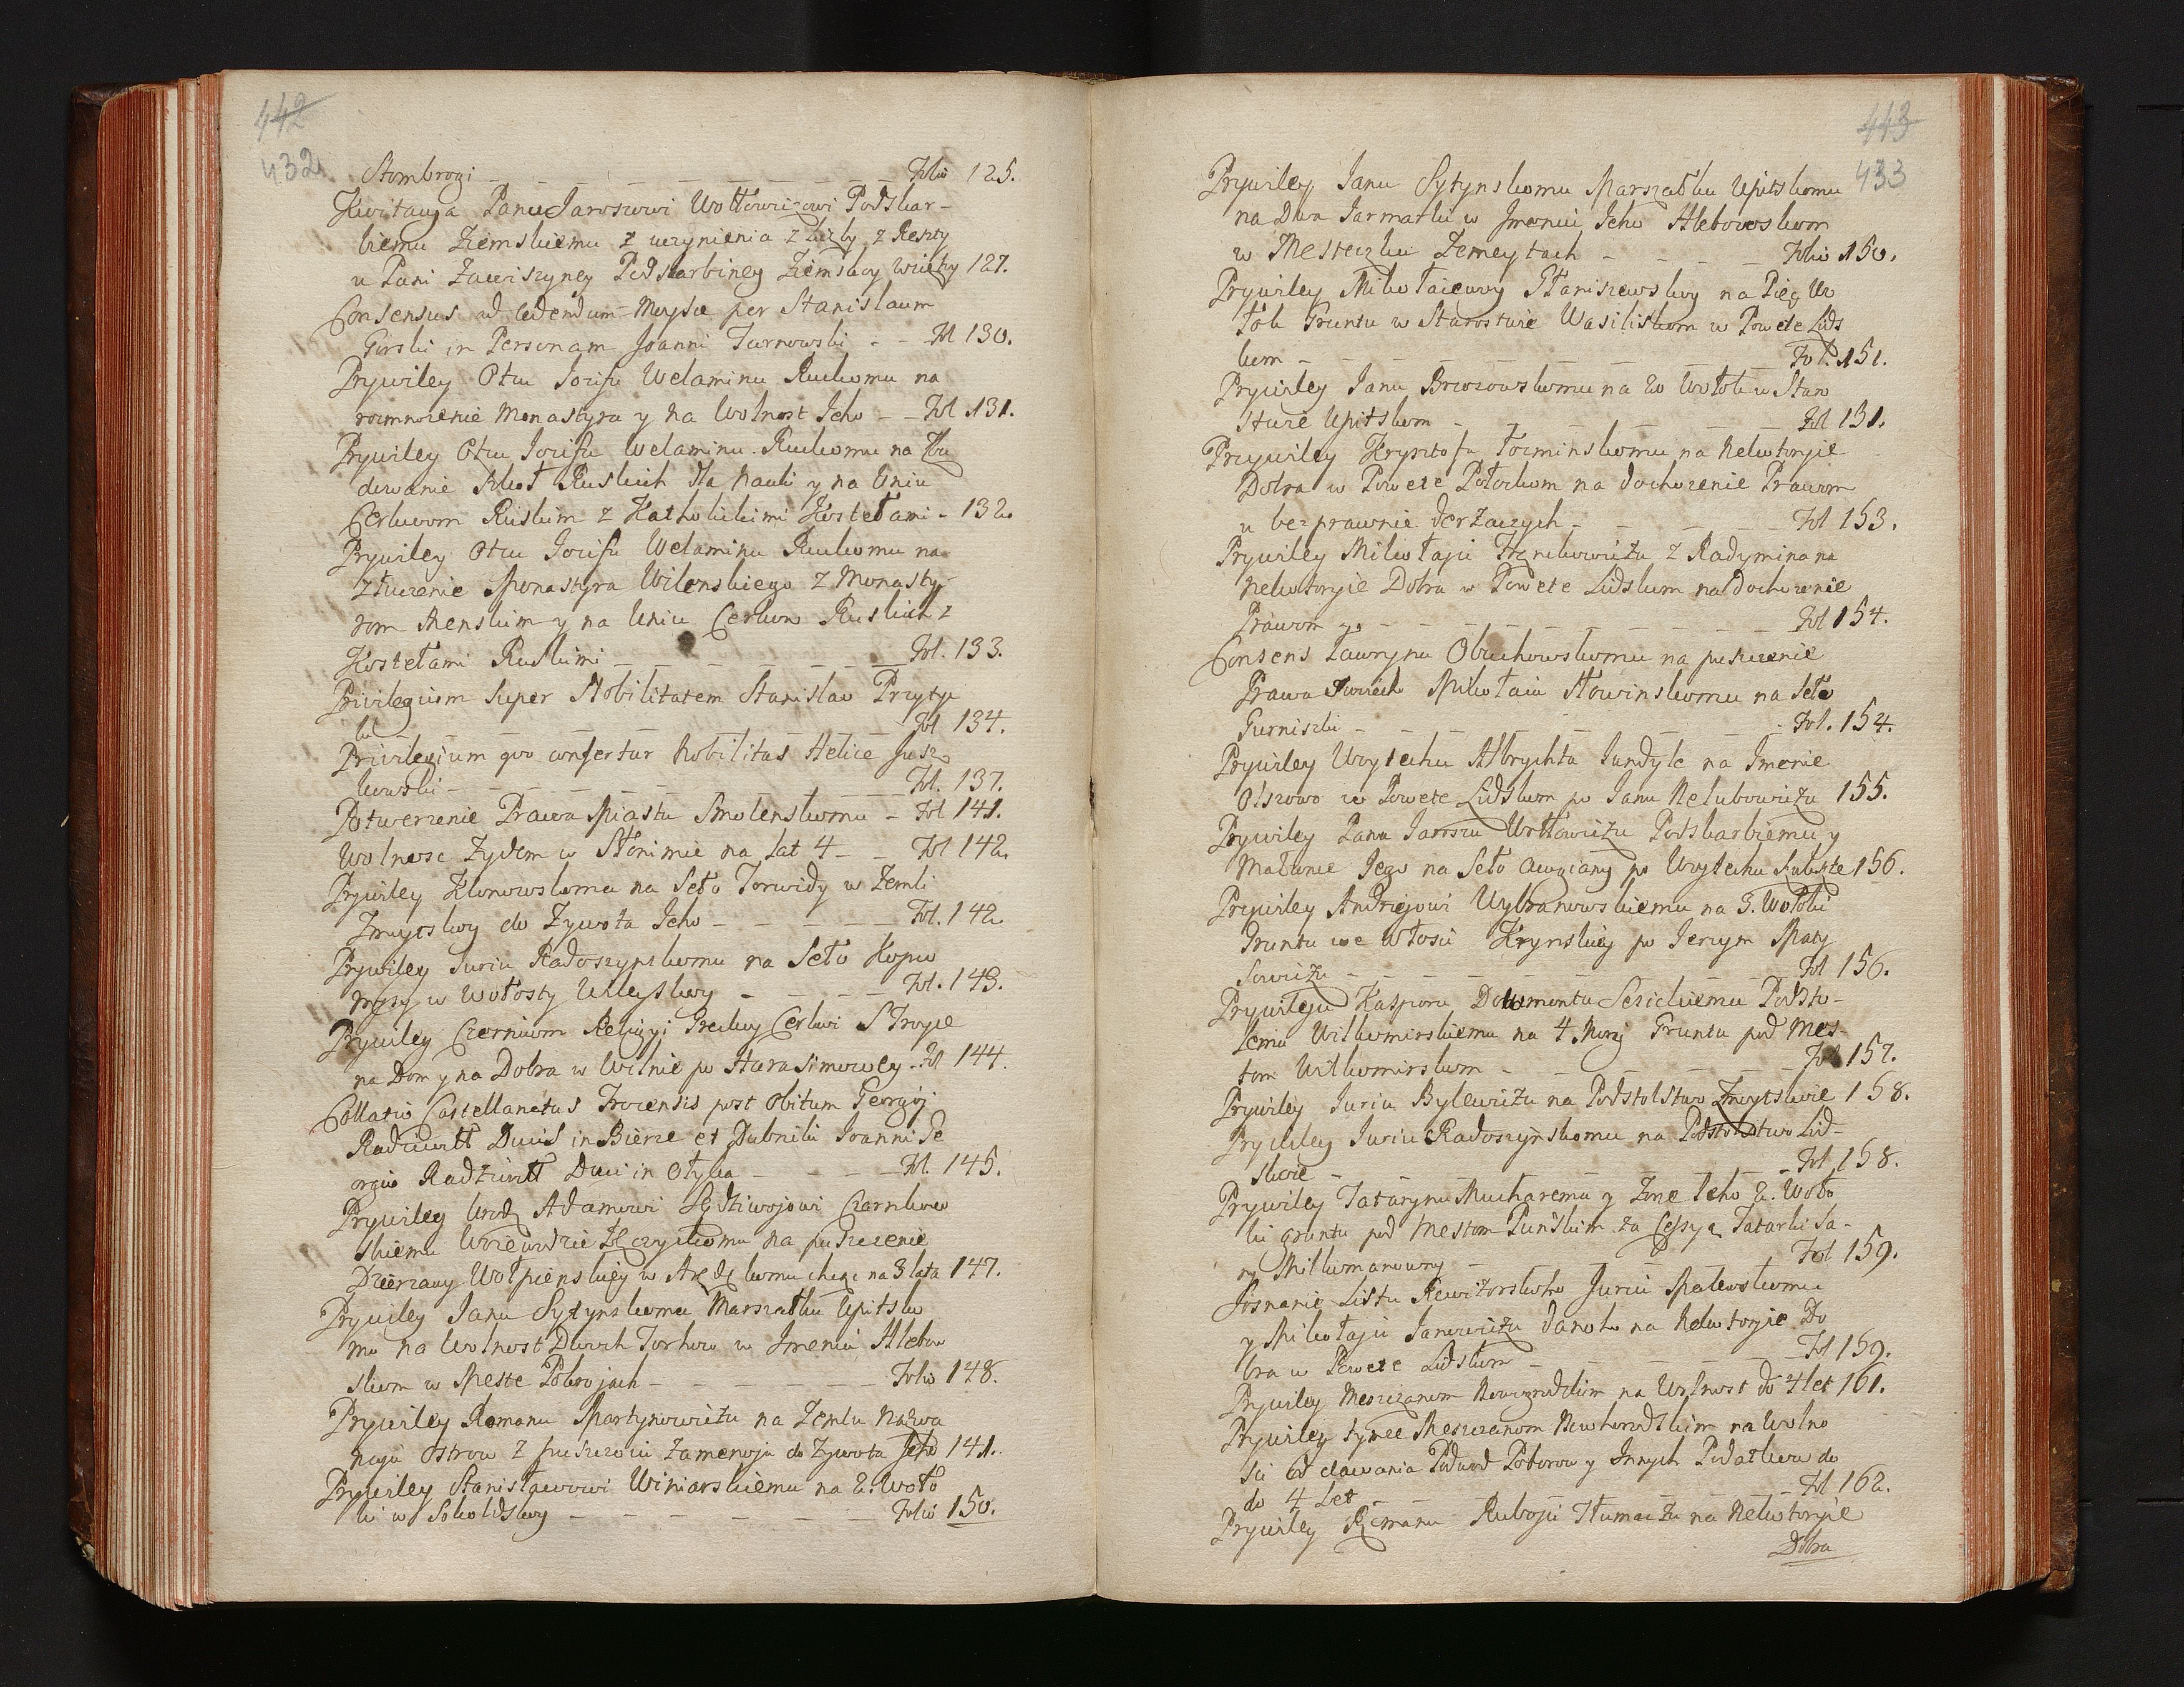 442
432
Stombrogi - - - - - - - - - - Folio 125.
Kwitacyja Panu Jaroszowi Wołłowiczowi Podskar-
biemu Ziemskiemu z uczynienia z liczby z Reszty
u Pani Zawiszyney Podskarbiney Ziemskoy wziętey 127.
Consensus ad cedendum Meyste per Stanislaum
Gorski in Personam Joanni Turnowski - - Fol 130.
Prywiley Otcu Jozifu Welaminu Ruckomu na
rozmnozenie Monastyra y na Wolnost Jeho - - Fol 131.
Prywiley Otcu Jozifu Welaminu Ruckomu na Zbu
dowanie Szkoł Ruskich dla Nauki y na Uniu
Cerkwom Ruskim z Katholickimi Kostełami - 132.
Prywiley Otcu Jozifu Welaminu Ruckomu na
Złuczenie Monastyra Wilenskiego z Monasty-
rom Menskim y na Uniu Cerkwo Ruskich z
Kostełami Ruskimi - - - - - - Fol. 133.
Privilegium super Nobilitatem Stanislao Przyty
ki - - - - - - - - Fol 134.
Privilegium quo confertur Nobilitas Helice Jusz
kowski - - - - - - - - Fol. 137.
Potwerzenie Prawa Miastu Smolenskomu - Fol 141.
Wolnosc Zydom w Słonimie na Lat 4 - - Fol 142.
Prywiley Klonowskomu na Seło Torwidy w Zemli
Zmoytskoy do Zywota Jeho - - - - - Fol. 142
Prywiley Juriu Radoszynskomu na Seło Kopu
meysy w Wołosty Utleyskoy - - - - Fol. 143.
Prywiley Czerncom Religiyi Greckoy Cerkwi S Troyce
na Dom y na Dobra w Wilnie po Harasimowey - Fol 144.
Collatio Castellanatus Trocensis post obitum Georgij
Radziwiłł Ducis in Bierze et Dubniki Joanni Ge
orgio Radziwiłł Duci in Ołyka - - - - Fol. 145.
Prywiley Urodz Adamowi Sędziwojowi Czarnkow
skiemu Woiewodzie Łęczyckomu na puszczenie
Dzierzawy Wołpienskiey w Arędę komu chcąc na 3 lata 147.
Prywiley Janu Sytynskomu Marszałku Upitsko
mu na Wolnost Dwoch Torhow w Jmeniu Hlebow
skom w Meste Pokrojach - - - - - Folio 148.
Prywiley Romanu Martynowiczu na Zemlu nazwa
nuju Ostrow z puszczoiu Zamenoju do Zywota Jeho 141.
Prywiley Stanisławowi Winiarskiemu na 2. Woło
ki w Sokoldskoy - - - - - - - Folio 150.
443
433
Prywiley Janu Sytynskomu Marszałku Upitskomu
na Dwa Jarmarku w Jmeniu Jeho Hlebowskom
w Mesteczku Zemeytach - - - - Folio 150.
Prywiley Mikołaiewoy Staniszewskoy na Pięc Wo
łok Gruntu w Starostwie Wasiliskom w Powete Lids
kom - - - - - - - - Fol. 151.
Prywiley Janu Brzozowskomu na 20 Wołok w Staro
stwie Upitskom - - - - - - Fol 151.
Prywiley Krysztofu Łozminskomu na Nekotoryie
Dobra w Powete Połockom na dochozenie Prawom
u bezprawnie derzaczych - - - - - Fol 153.
Prywiley Mikołaju Frąnckowiczu z Radymina na
Nekotoryie Dobra w Powete Lidskum na dochozenie
Prawom - - - - - - - - - - Fol 154.
Consens Ławrynu Obuchowskomu na puszczenie
Prawa Swoieho Mikołaiu Słowinskomu na Seło
Gurniszki - - - - - - - Fol. 154.
Prywiley Woytechu Albrychtu Jundyłe na Jmenie
Olszowo w Powete Lidskom po Janu Nelubowiczu 155.
Prywiley Panu Jaroszu Wołłowiczu Podskarbiemu y
Małżonce Jego na Seło po Woytechu 156.
Prywiley Andriejowi Wybranowskiemu na 3. Wołoki
Gruntu we Włosci Krynskiey po Jerzym Maty
sowiczu - - - - - - - - Fol 156.
Prywileju Kasporu Dowmontu Sesickiemu Podsto-
lemu Wilkomirskiemu na 4 Morgi Gruntu pod Mes-
tom Wilkomirskom - - - - - - Fol 157.
Prywiley Juriu Bylewiczu na Podstolstwo Zmoytskoie 158.
Prywiley Juriu Radoszynskomu na Podstolstwo Lid-
skoie - - - - - - - - Fol 158.
Prywiley Tatarynu Mucharemu y Zone Jeho 2. Woło
ki gruntu pod Mestom Punskim za Cessyą Tatarki Sa-
ry Milkumanowny - - - - - - Fol 159.
Posnanie Listu Rewizorskoho Juriu Malewskomu
y Mikołaju Janowiczu danoho na Nekotoryie Do
bra w Powete Lidskom - - - - - Fol 159.
Prywiley Meszczanom Nowogrodskim na Wolnost do 4 let 161.
Prywiley tymze Meszczanom Nowhorodskim na Wolno
sci od dawania Podwod Poborow y Jnnych Podatkow do
do 4 Let - - - - - - - Fol 162.
Prywiley Romanu Ruboju Tłumaczu na Nekotoryie
Dobra